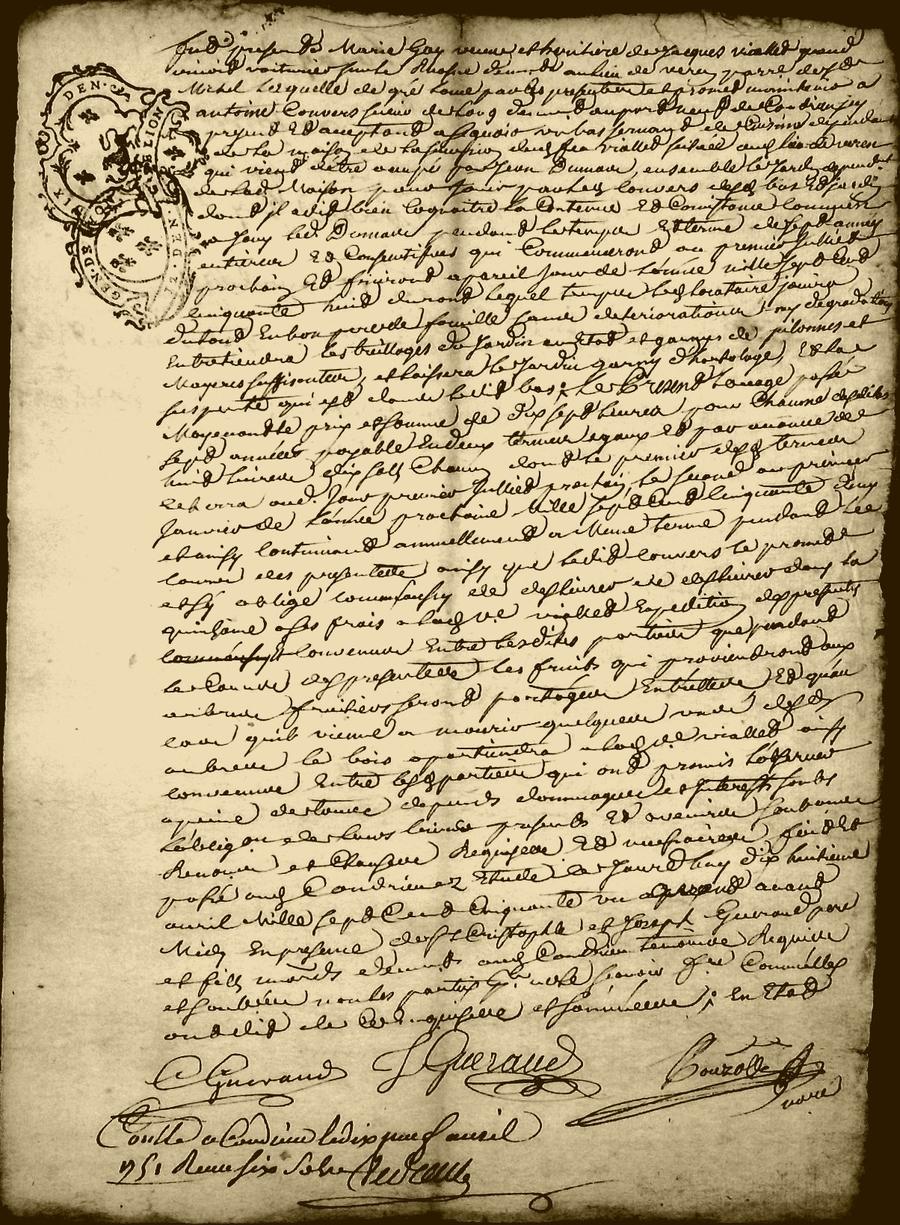 DEN·
DE LION
GEN·DE
GEN·DS
fut presente Marie Gay veuve et heritière de Jacques viallet quand
vivoit voiturier sur le Rhosne demt au lieu de verin parre de St
Michel laquelle de gré comme par les presentes et promet maintenir a
antoine Convers sieur de Long demeurant au port neuf de Condrieu icy
present Et acceptant a sçavoir un bas servant de Cuisine dependant
de la maison de la succession dud feu viallet située aud lieu de verin
qui vient d'être occupé par Jean Dumas, ensemble le Jardin dependant
de lad. Maison pour jouir par led Convers desd bas Et Jardin
dont il a dit bien connoitre la Contenue Et Consistance comme en
a Jouy led. Dumas pendant le temps Et terme de sept années
entieres Et Consecutives qui Commenceront au premier Juillet
prochain Et finiront a pareil Jour de l'année mille sept Cent
Cinquante huit durant lequel temps led locataire jouira
du tout En bon pere de famille sans deteriorations ny degradations
Entretiendra les treillages du Jardin en Etat et garnis de pilonnes et
Moyeres suffisantes, et laissera le Jardin garny d'hortolage, Et la
suspente qui est dans ledit bas; Le Present Louage passé
Moyenant le prix et somme de dix sept livres pour Chacune desdites
sept années payable En deux termes egaux Et par avance de
huit livres dix sols Chacun dont le premier desd termes
echerra aud. Jour premier Juillet prochain, le second au premier
Janvier de l'année prochaine Mille Sept Cent Cinquante deux
et ainsy continuant annuellement a Meme terme pendant le
cours des presentes ainsy que ledit Convers le promet
et s'y oblige comme aussy de delivrer et delivrer dans la
quinzaine a ses frais a lad Ve viallet Expedition des presentes
convenu Entre lesdites parties que pendant
le Cours des presentes les fruits qui proviendront aux
arbres fruitiers seront partagés Entr'elles, Et qu'au
cas qu'il vienne a mourir quelques uns desd
arbres le bois apartiendra a lad Ve viallet ainsy
convenu Entre lesd parties qui ont promis l'observer
a peine de tous depends dommages et interests sous
l'obligaon de leurs biens presents Et avenirs soumons
Renonon et Clauses Requises Et necessaires, fait Et
passé aud Condrieu Etude Ce Jourd'huy dix huitieme
avril Mille Sept Cent Cinquante un avant
Midy En presence de Sr Cristophle et Joseph Gueraud pere
et fils mards demts aud Condrieu temoins Requis
et soubsnes non les parties pr ne le sçavoir fre Comme elles
ont dit de Ce enquises et sommées; En Etat
CGueraud
JGueraud
Bourdelle
Conlle a Condrieu le dix neuf avril
1751 Receu six sols